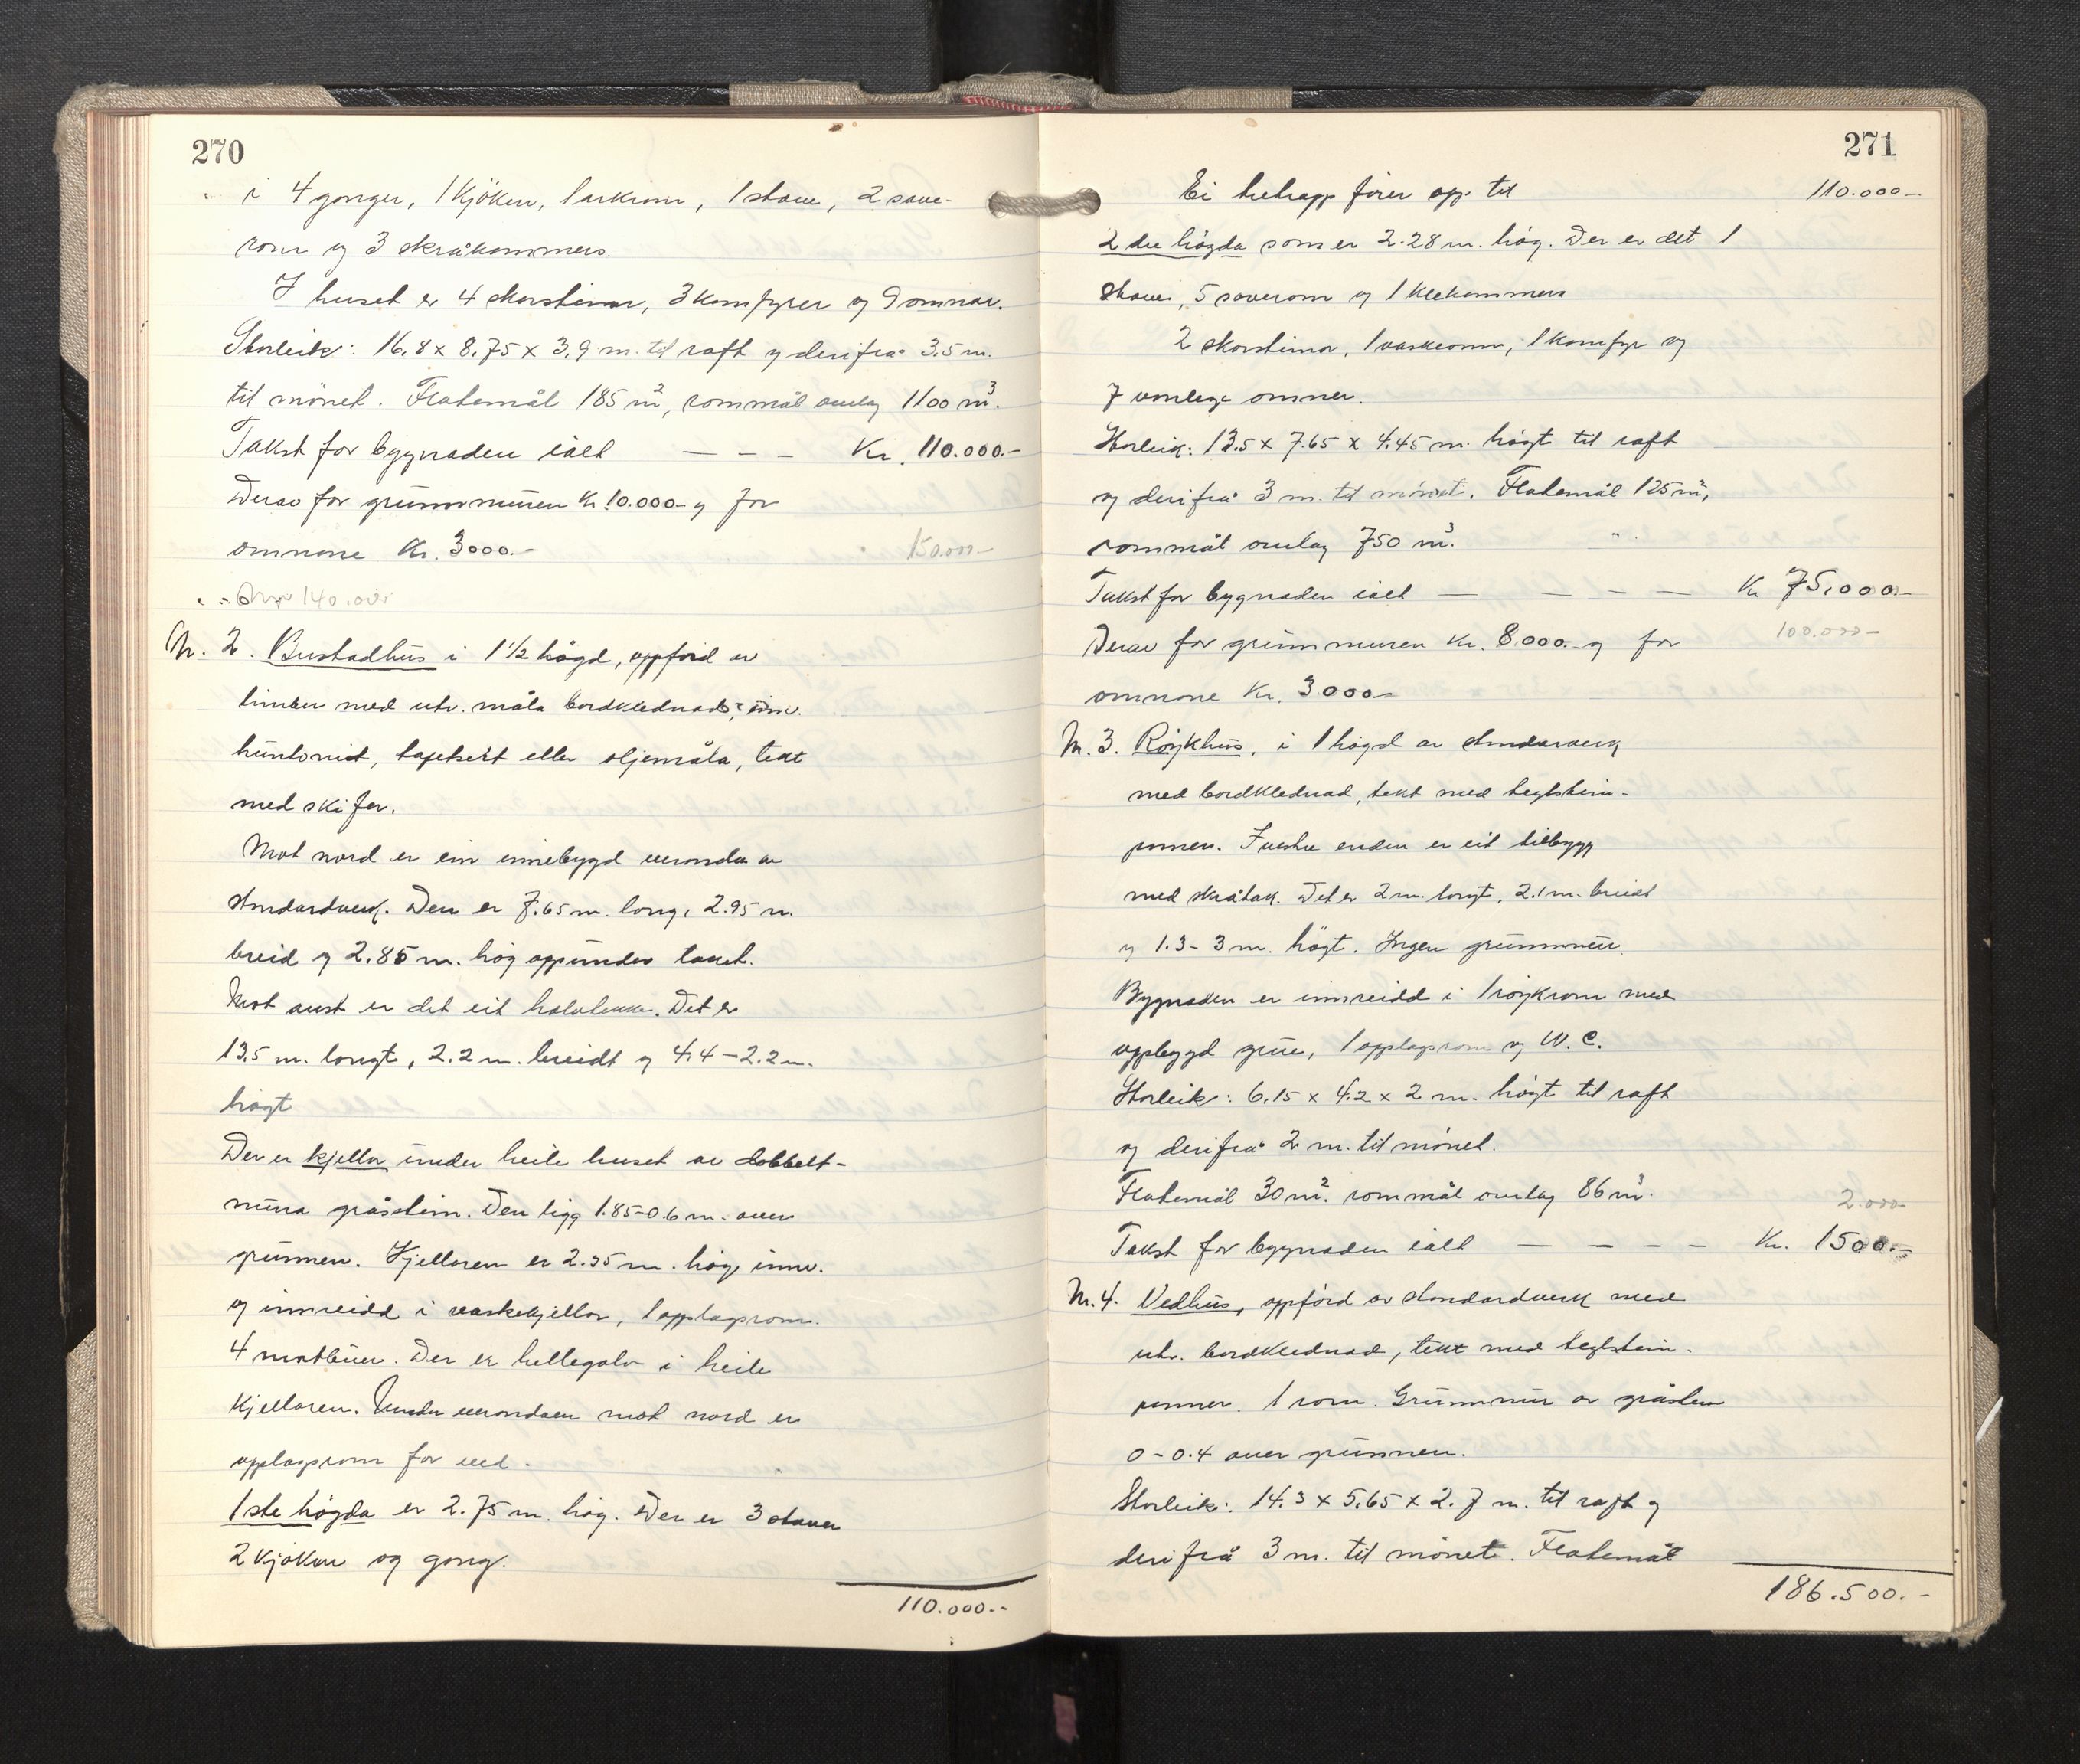 270
i 4 gonger, 1 kjöken, 1 arkrom, 1 stove, 2 sove-
rom og 3 skråkommers.
I huset er 4 skorsteinar, 3 komfyrer og 9 omnar.
Storleik: 16.8 x 8.75 x 3.9 m. til raft og derifrå 3.5 m.
til mönet. Flatemål 185 m², rommål omlag 1100 m³.
Takst for bygnaden ialt — — — Kr. 110.000.-
Derav for grunnmuren Kr. 10.000.- og for
omnane Kr. 3000.-
150.000-
140.000
Nr. 2. Bustadhus i 1½ högd, oppförd av
timber med utv. måla bordklednad, innv.
huntonit, tapetsert eller oljemåla, tekt
med skifer.
Mot nord er ein innebygd veranda av
standardverk. Den er 7.65 m. long, 2.95 m.
breid og 2.85 m. hög oppunder taket.
Mot aust er det eit halvtekke. Det er
13.5 m. longt, 2.2 m. breidt og 4.4 - 2.2 m.
högt
Der er kjellar under heile huset av dobbelt-
mura gråstein. Den ligg 1.85-0.6 m. over
grunnen. Kjellaren er 2.35 m. hög innv.
og innreidd i vaskekjellar, 1 opplagsrom.
4 matbuer. Der er hellegolv i heile
kjellaren. Under verandaen mot nord er
opplagsrom for ved.
1ste högda er 2.75 m. hög. Der er 3 stover
2 kjöken og gong.
110.000.-
271
Ei tretrapp förer opp til 110.000-
2dre högda som er 2.28 m. hög. Der er det 1
stove, 5 soverom og 1 klekommers
2 skorsteinar, 1 vaskeomn, 1 komfyr og
7 vanlege omner.
Storleik: 13.5 x 7.65 x 4.45 m. högt til raft
og derifrå 3 m. til mönet. Flatemål 125 m²,
rommål omlag 750 m³.
Takst for bygnaden ialt — — — — Kr 75.000.-
100.000-
Derav for grunnmuren Kr. 8.000.- og for
omnane Kr. 3000-
Nr. 3. Röykhus, i 1 högd av standarverk
med bordklednad, tekt med teglstein-
pannen. I vestre enden er eit tilbygg
med skråtak. Det er 2 m. longt, 2.1 m. breidt
og 1.3 - 3 m. högt. Ingen grunnmur.
Bygnaden er innreidd i 1 röykrom med
oppbygd grue, 1 opplagsrom og W.C.
Storleik: 6.15 x 4.2 x 2 m. högt til raft
og derifrå 2 m. til mönet.
Flatemål 30 m². rommål omlag 86 m³.
2.000-
Takst for bygnaden ialt — — — — Kr. 1500.-
Nr. 4. Vedhus, oppförd av standardverk med
utv. bordklednad, tekt med teglstein-
panner. 1 rom. Grunnmur av gråstein
0 - 0.4 over grunnen.
Storleik: 14.3 x 5.65 x 2.7 m. til raft og
derifrå 3 m. til mönet. Flatemål
186.500.-